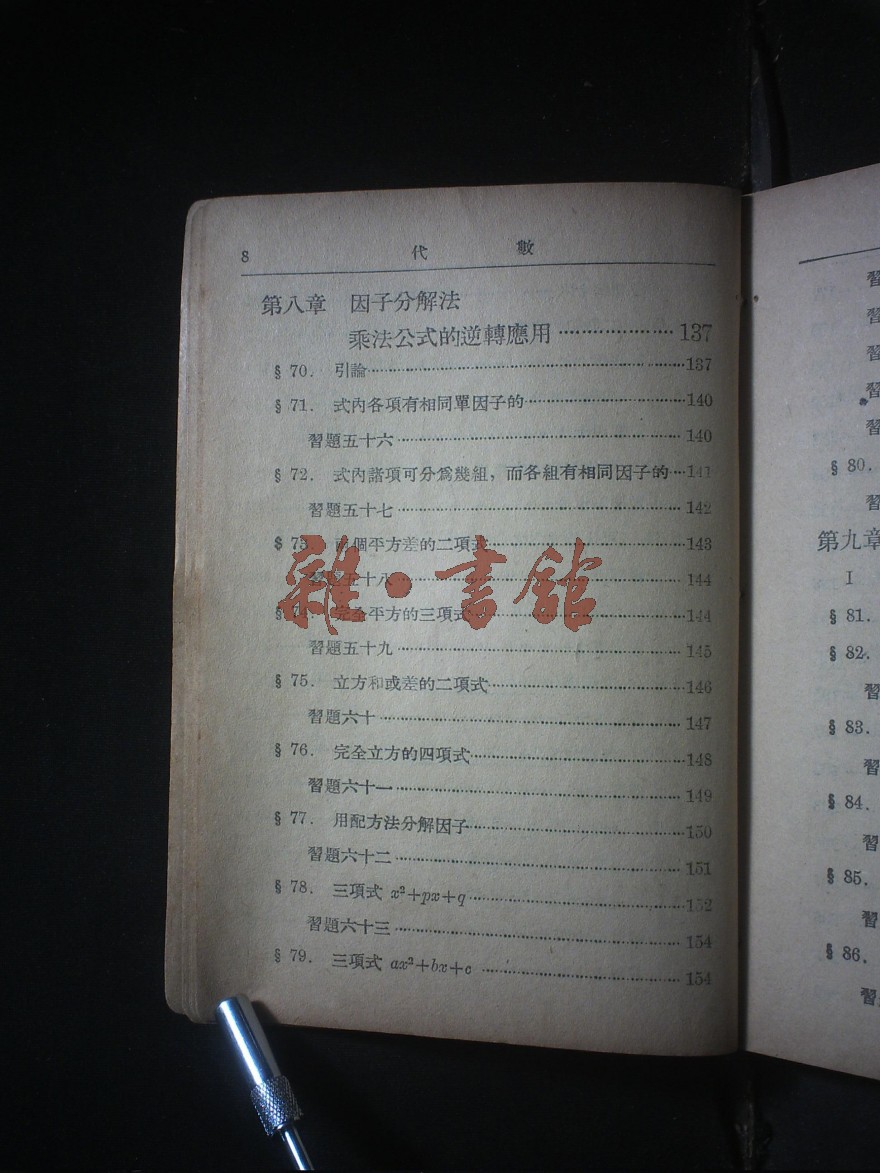 8 代 數
第八章 因子分解法
乘法公式的逆轉應用 ………………… 137
§ 70. 引論 ………………… 137
§ 71. 式內各項有相同單因子的 ………………… 140
習題五十六 ………………… 140
§ 72. 式內諸項可分爲幾組，而各組有相同因子的 … 141
習題五十七 ………………… 142
§ 73. 兩個平方差的二項式 ………………… 143
習題五十八 ………………… 144
§ 74. 完全平方的三項式 ………………… 144
習題五十九 ………………… 145
§ 75. 立方和或差的二項式 ………………… 146
習題六十 ………………… 147
§ 76. 完全立方的四項式 ………………… 148
習題六十一 ………………… 149
§ 77. 用配方法分解因子 ………………… 150
習題六十二 ………………… 151
§ 78. 三項式 x²+px+q ………………… 152
習題六十三 ………………… 154
§ 79. 三項式 ax²+bx+c ………………… 154
雜·書館
習
習
習
習
習
§ 80.
習
第九章
I
§ 81.
§ 82.
習
§ 83.
習
§ 84.
習
§ 85.
習
§ 86.
習